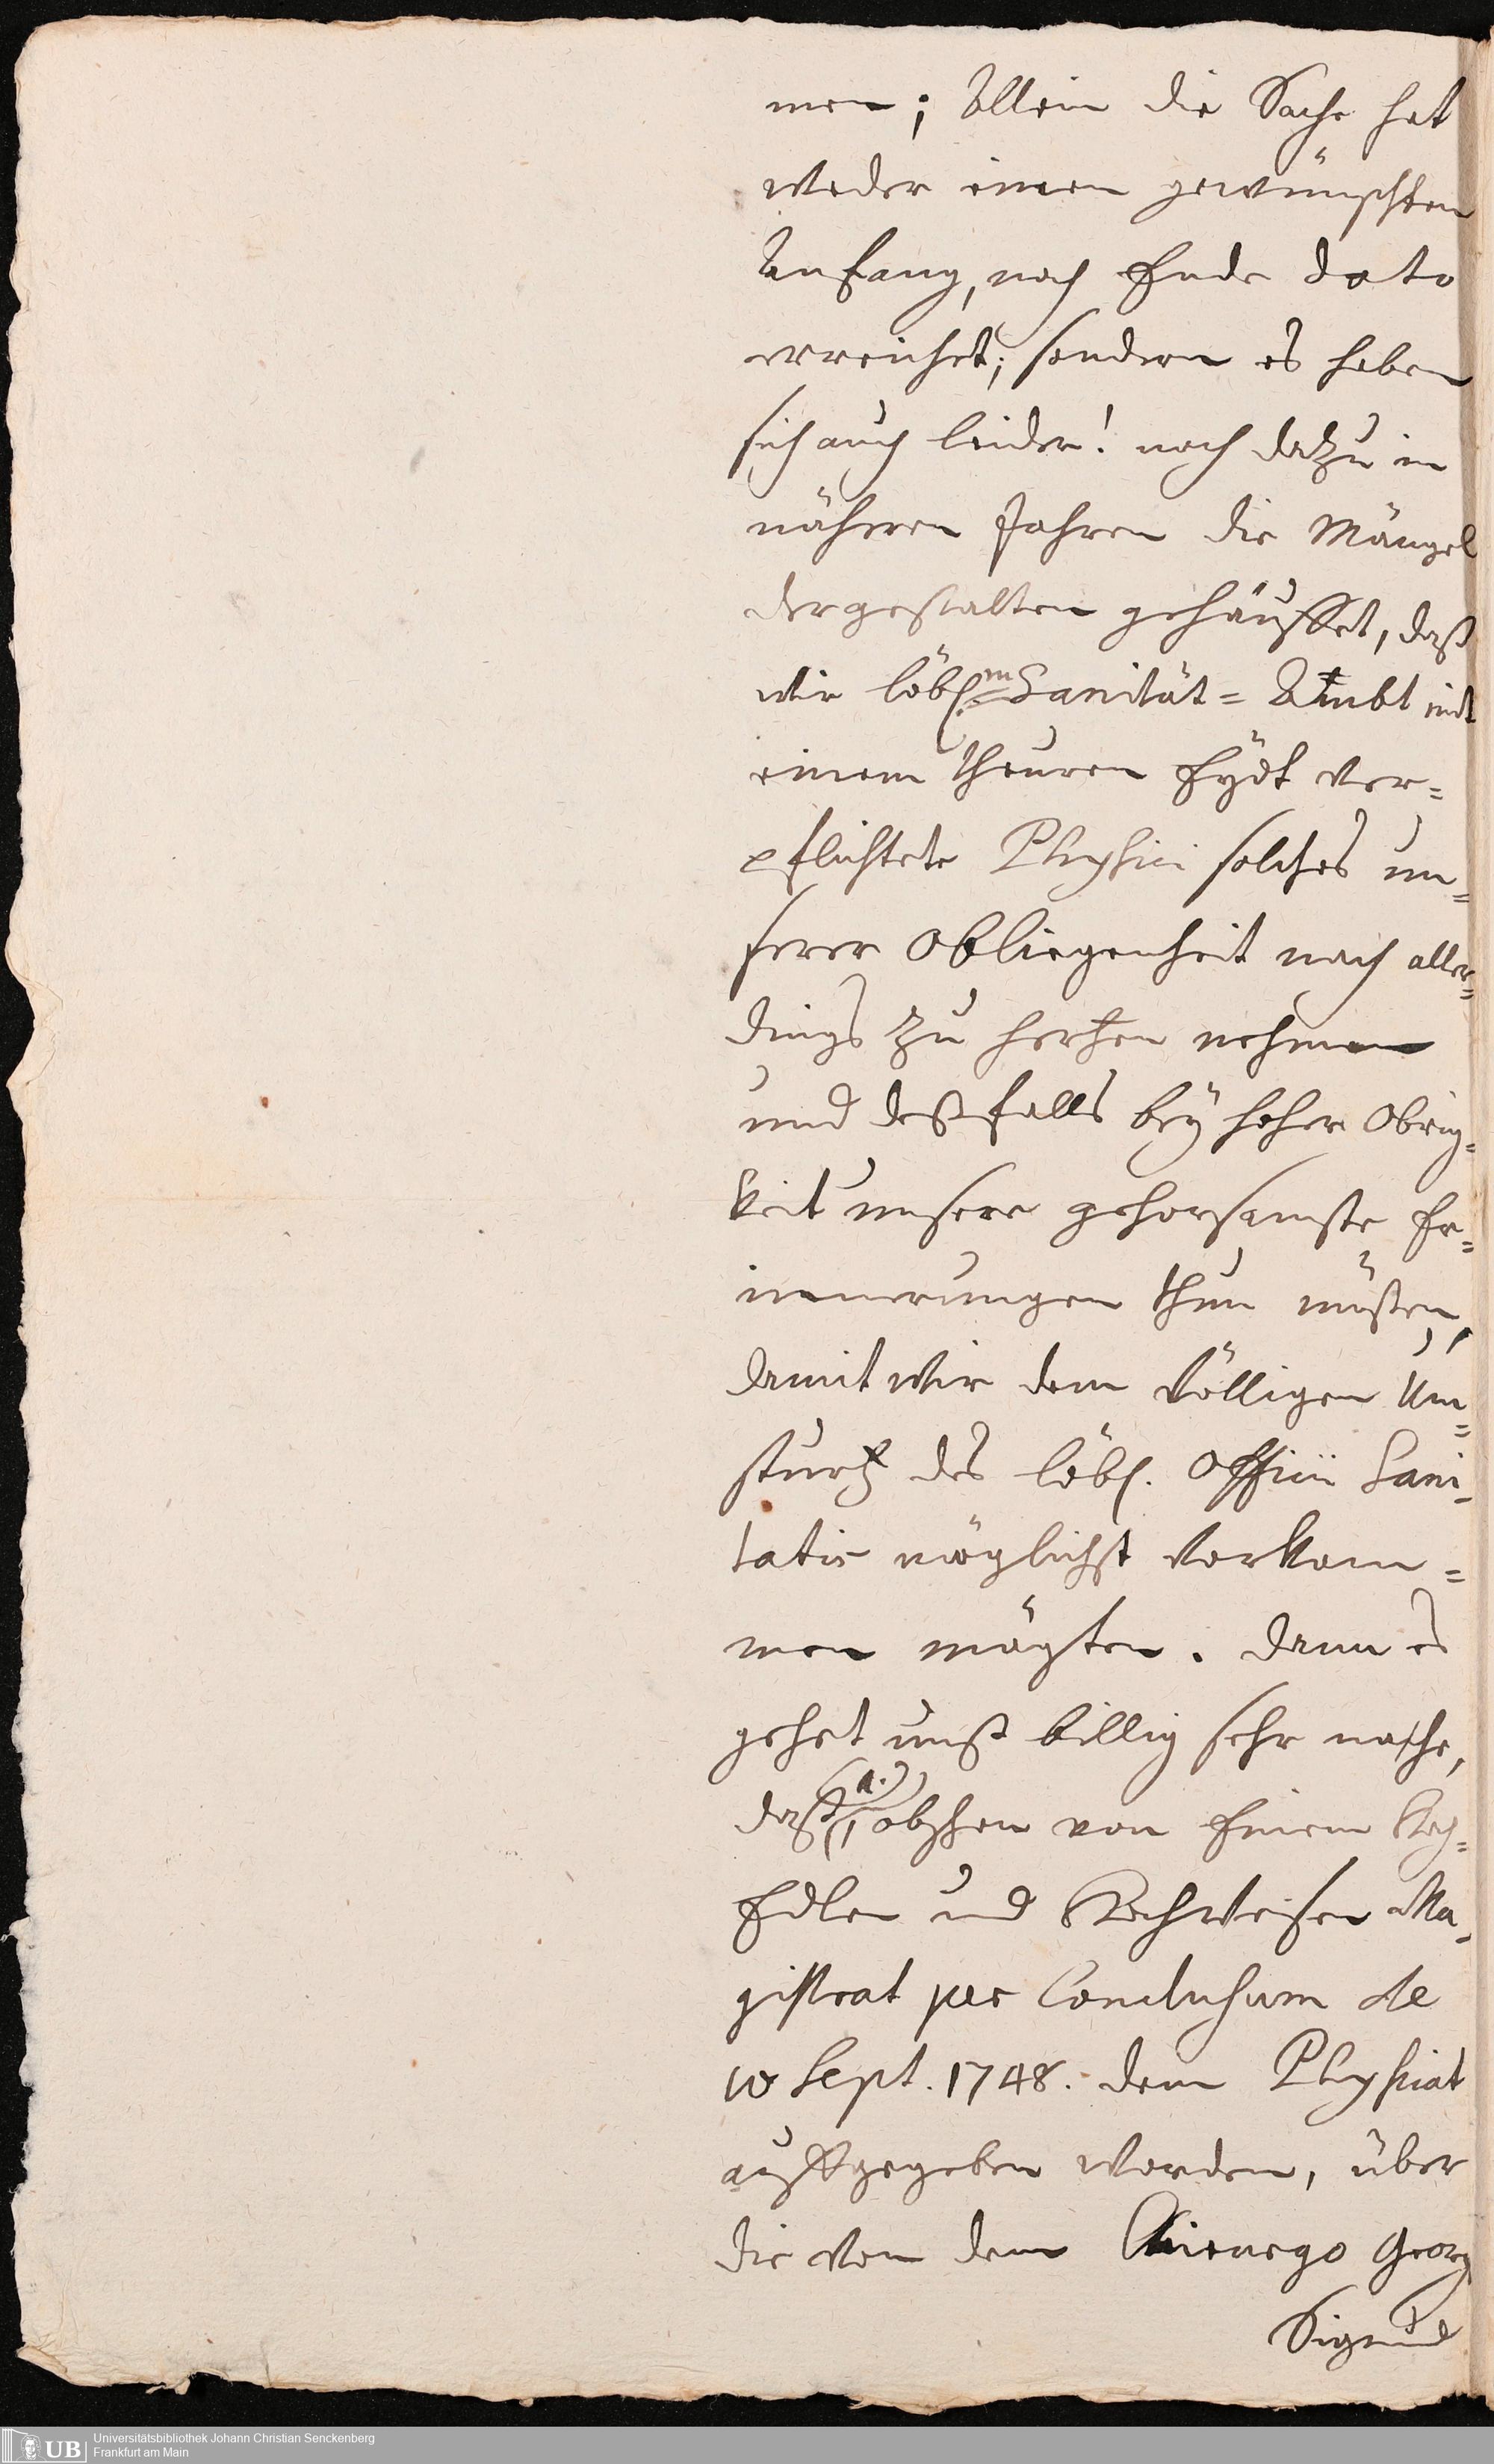 men; Allein die Sache hat
weder einen gewünschten
Anfang, noch Ende dato
erreichet; sondern es haben
sich auch leider! noch dazu in
näheren Jahren die Mängel
dergestalten gehäuffet, daß
wir löbl.m Sanität= Ambt mit
einem theuren Eydt ver=
pflichtete Physici solches un=
serer Obliegenheit nach aller=
dings zu hertzen nehmen
und deßfalls bey hoher Obrig=
keit unsere gehorsamste Er=
innerungen thun müßen,
damit wir dem völligen Um=
sturtz des löbl. Officii Sani=
tatis möglichst vorkom=
men mögten. Dann es
gehet unß billig sehr nahe,
daß (a.) 1) obschon von Einem Hoch=
Edlen und Hochweisen Ma=
gistrat per Conclusum de
10 Sept. 1748. dem Physicat
auffgegeben worden, über
die von dem Chirurgo Georg
Sigmund
Universitätsbibliothek Johann Christian Senckenberg
Frankfurt am Main
UB